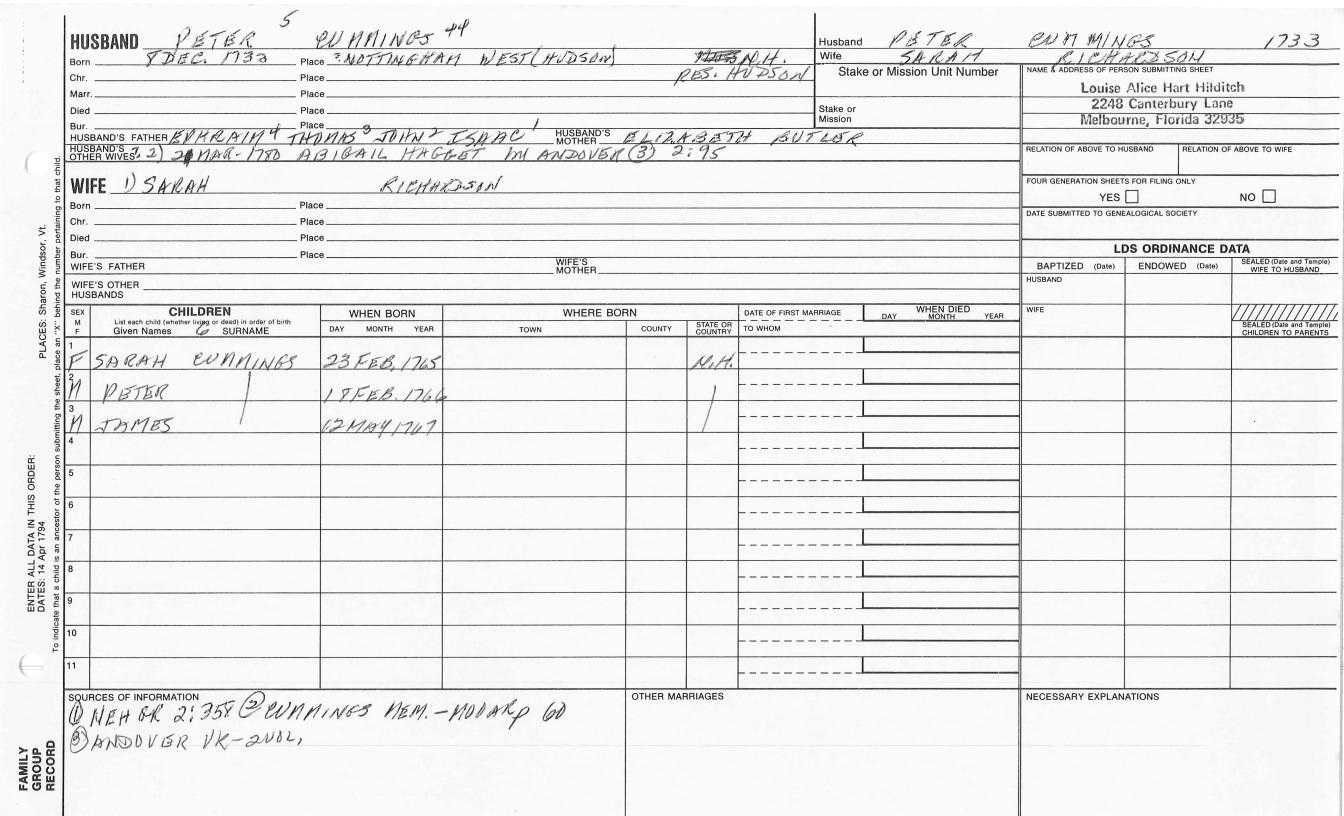 HUSBAND PETER 5 CUMMINGS 44
Born 8 DEC. 1733 Place NOTTINGHAM WEST (HUDSON) N.H.
Chr. Place RES. HUDSON
Marr. Place
Died Place
Bur. Place
HUSBAND'S FATHER EPHRAIM 4 THOMAS 3 JOHN 2 ISAAC 1 HUSBAND'S MOTHER ELIZABETH BUTLER
HUSBAND'S OTHER WIVES 2) MAR-1780 ABIGAIL HAGGET IN ANDOVER (3) 2:95
WIFE 1) SARAH RICHARDSON
Born Place
Chr. Place
Died Place
Bur. Place
WIFE'S FATHER WIFE'S MOTHER
WIFE'S OTHER HUSBANDS
Husband PETER CUMMINGS 1733
Wife SARAH RICHARDSON
Stake or Mission Unit Number
Stake or Mission
NAME & ADDRESS OF PERSON SUBMITTING SHEET
Louise Alice Hart Hilditch
2248 Canterbury Lane
Melbourne, Florida 32935
RELATION OF ABOVE TO HUSBAND RELATION OF ABOVE TO WIFE
FOUR GENERATION SHEETS FOR FILING ONLY
YES NO
DATE SUBMITTED TO GENEALOGICAL SOCIETY
LDS ORDINANCE DATA
BAPTIZED (Date) ENDOWED (Date) SEALED (Date and Temple) WIFE TO HUSBAND
HUSBAND
WIFE
SEALED (Date and Temple) CHILDREN TO PARENTS
SEX M F CHILDREN WHEN BORN WHERE BORN DATE OF FIRST MARRIAGE WHEN DIED
List each child (whether living or dead) in order of birth
Given Names 6 SURNAME DAY MONTH YEAR TOWN COUNTY STATE OR COUNTRY TO WHOM DAY MONTH YEAR
1 F SARAH CUMMINGS 23 FEB. 1765 N.H.
2 M PETER 18 FEB. 1766
3 M JAMES 12 MAY 1767
4
5
6
7
8
9
10
11
SOURCES OF INFORMATION OTHER MARRIAGES NECESSARY EXPLANATIONS
(1) NEH GR 2:358 (2) CUMMINGS MEM.-MOOAR p 60
(3) ANDOVER VR-2VOL,
PLACES: Sharon, Windsor, Vt.
ENTER ALL DATA IN THIS ORDER:
DATES: 14 Apr 1794
To indicate that a child is an ancestor of the person submitting the sheet, place an "X" behind the number pertaining to that child.
FAMILY GROUP RECORD